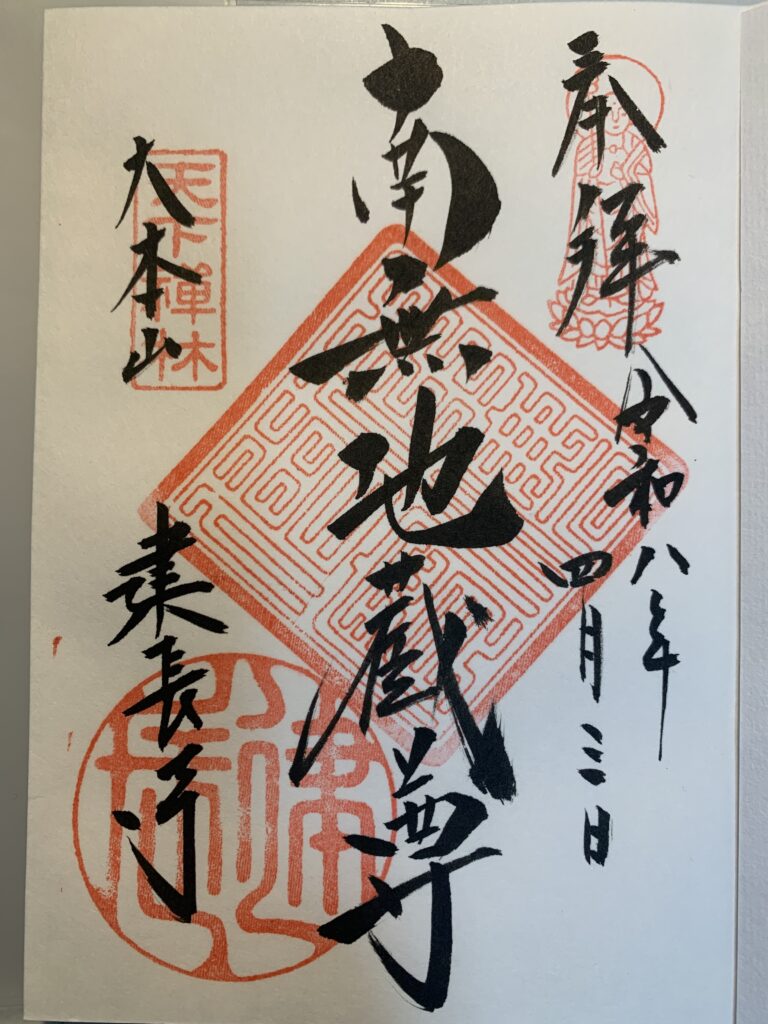 奉拝
令和八年
四月三日
南無地蔵尊
天下禅林
大本山
建長寺
建長